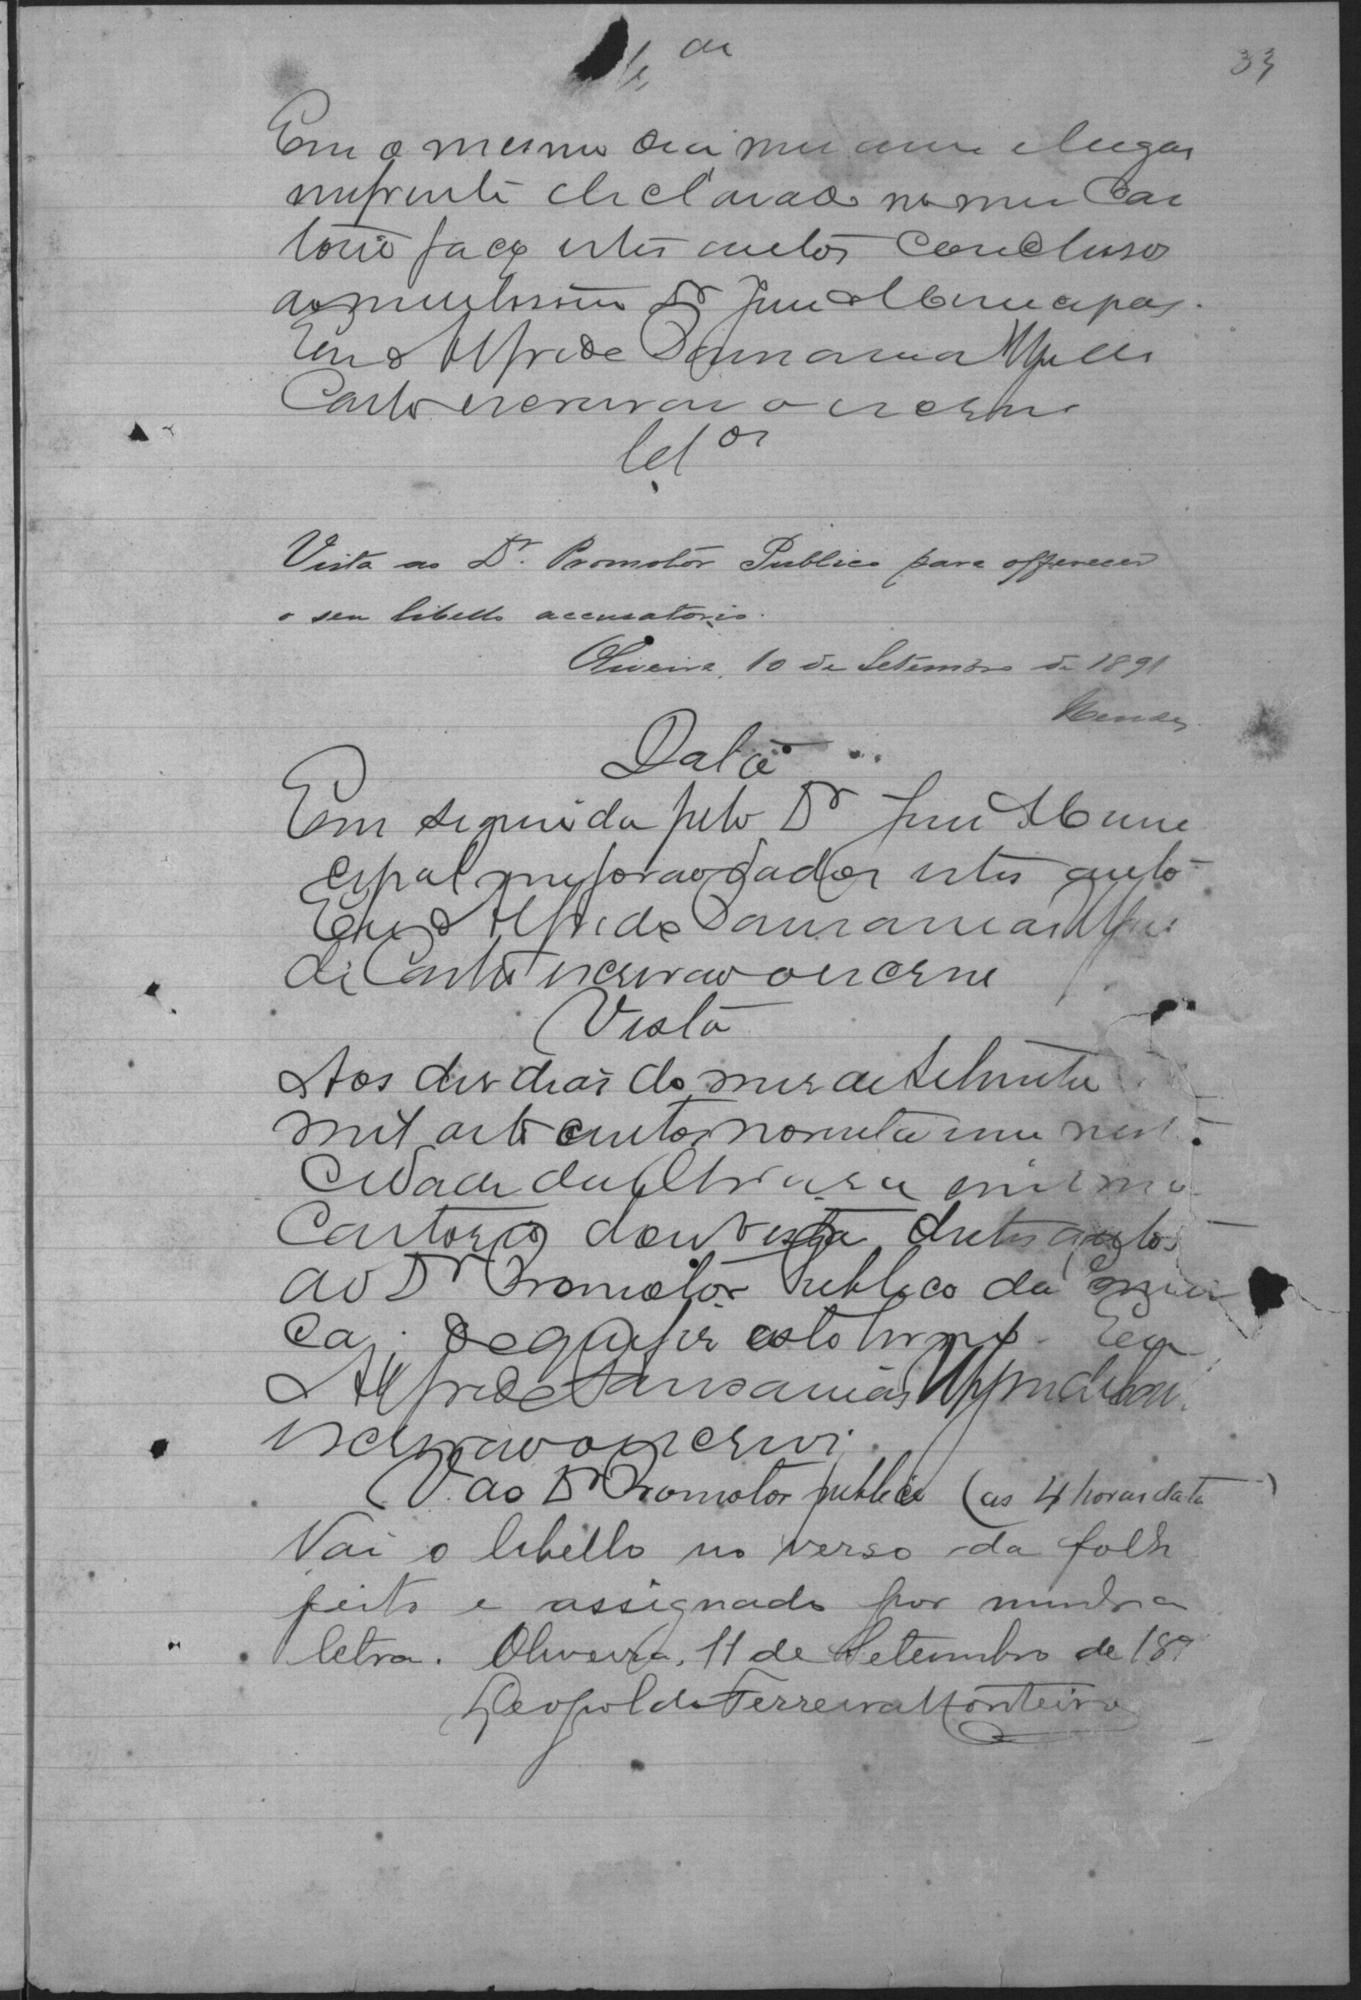 33
Em o mesmo dia mez anno e lugar
nafrente declarado no meu Car
torio faço estes autos conclusos
ao meretissimo Dr Juiz Municipal.
Eu Alfredo Pausanias
Castro escrivão o escrevi
Clos
Vista ao Dr. Promotor Publico para offerecer
o seu libello accusatorio.
Oliveira, 10 de Setembro de 1891
Data
Em seguida pelo Dr Juiz Muni
cipal me forão dados estes autos
Eu Alfredo Pausanias
de Castro escrivão o escrevi
Vista
Aos dez dias do mez de Setembro
mil oito centos noventa um nesta
Cidade da Oliveira em meu
Cartorio dou vista destes autos
ao Dr Promotor Publico da Comar
ca; do que fiz este termo. Eu
Alfredo Pausanias
escrivão o escrevi.
V. ao Dr Promotor publico (as 4 horas data)
Vai o libello no verso da folha
feito e assignado por minha
letra. Oliveira, 11 de Setembro de 189
Leopoldo Ferreira Monteiro